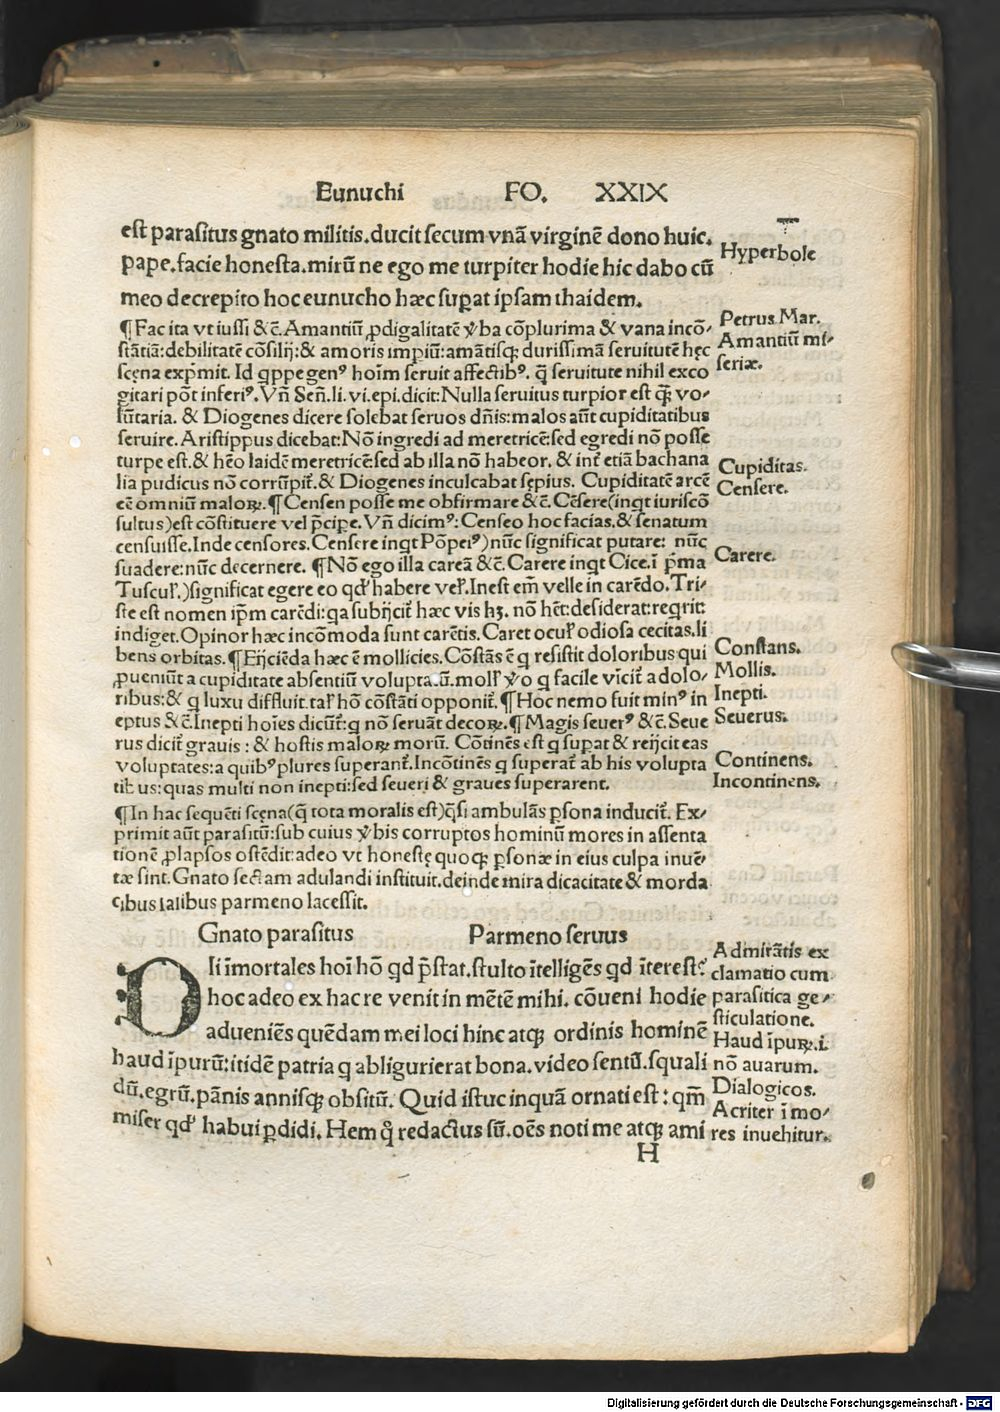 Eunuchi FO. XXIX
est parasitus gnato militis.ducit secum vnā virginē dono huic.
pape.facie honesta.mirū ne ego me turpiter hodie hic dabo cū
meo decrepito hoc eunucho hæc suꝑat ipsam thaidem.
Hyperbole
¶Fac ita vt iussi &c̄.Amantiū ꝓdigalitatē ꝟba cōplurima & vana incō-
stātiā:debilitatē cōsilij:& amoris impiū:amātisqꝫ durissimā seruitutē hęc
scęna expͥmit. Id qppe genꝰ hoīm seruit affectibꝰ. q̄ seruitute nihil exco
gitari pōt inferiꝰ. Vñ Señ.li.vi.epi.dicit:Nulla seruitus turpior est q̄ꝫ vo-
lūtaria. & Diogenes dicere solebat seruos dn̄is:malos aūt cupiditatibus
seruire.Aristippus dicebat:Nō ingredi ad meretricē:sed egredi nō posse
turpe est.& hēo laidē meretricē:sed ab illa nō habeor. & int̄ etiā bachana
lia pudicus nō corrūpit̄.& Diogenes inculcabat sępius. Cupiditatē arcē
eē omniū maloꝝ.¶Censen posse me obfirmare &c̄. Cēsere(inqt iuriscō
sultus)est cōstituere vel p̄cipe. Vñ dicimꝰ: Censeo hoc facias.& senatum
censuisse.Inde censores.Censere inqt Pōpeiꝰ)nūc significat putare: nūc
suadere:nūc decernere. ¶Nō ego illa careā &c̄.Carere inqt Cice.ī pͥma
Tuscul̄.)significat egere eo qd̓ habere vel̄.Inest em̄ velle in carēdo.Tri-
ste est nomen ip̄m carēdi:qa subijcit̄ hæc vis hꝫ. nō hēt:desiderat:reqrit:
indiget.Opinor hæc incōmoda sunt carētis.Caret ocul̄ odiosa cecitas.li
bens orbitas.¶Eijciēda hæc ē mollicies.Cōstās ē q resistit doloribus qui
ꝓueniūt a cupiditate absentiū volupta.ū.moll̄ ꝟo q facile vicit̄ a dolo-
ribus:& q luxu diffluit.tal̄ hō cōstāti opponit̄.¶Hoc nemo fuit minꝰ in
eptus &c̄.Inepti hoīes dicūt̄:q nō seruāt decoꝝ.¶Magis seuerꝰ &c̄.Seue
rus dicit̄ grauis : & hostis maloꝝ morū. Cōtinēs est q suꝑat & reijcit eas
voluptates:a quibꝰ plures superant̄.Incōtinēs q superat̄ ab his volupta
tibus:quas multi non inepti:sed seueri & graues superarent.
Petrus Mar.
Amantiū mi-
seriæ.
Cupiditas.
Censere.
Carere.
Constans.
Mollis.
Inepti.
Seuerus.
Continens.
Incontinens.
¶In hac sequēti scęna(q̄ tota moralis est)q̄si ambulās ꝑsona inducit̄. Ex-
primit aūt parasitū:sub cuius ꝟbis corruptos hominū mores in assenta
tionē ꝓlapsos ostēdit:adeo vt honestę quoqꝫ ꝑsonæ in eius culpa inuē-
tæ sint.Gnato sectam adulandi instituit.deinde mira dicacitate & morda
cibus salibus parmeno lacessit.
Gnato parasitus Parmeno seruus
DIi īmortales hoī hō qd p̄stat.stulto ītelligēs qd īterest?
hoc adeo ex hac re venit in mētē mihi. cōueni hodie
adueniēs quēdam mei loci hinc atqꝫ ordinis hominē
haud īpurū:itidē patria q abligurierat bona.video sentū.squali
dū.egrū.pānis annisqꝫ obsitū. Quid istuc inquā ornati est : qm̄
miser qd̓ habui ꝑdidi. Hem q̊ redactus sū.oēs noti me atqꝫ ami
Admirātis ex
clamatio cum
parasitica ge-
sticulatione.
Haud īpuꝝ.i.
nō auarum.
Dialogicos.
Acriter ī mo-
res inuehitur.
H
Digitalisierung gefördert durch die Deutsche Forschungsgemeinschaft - DFG